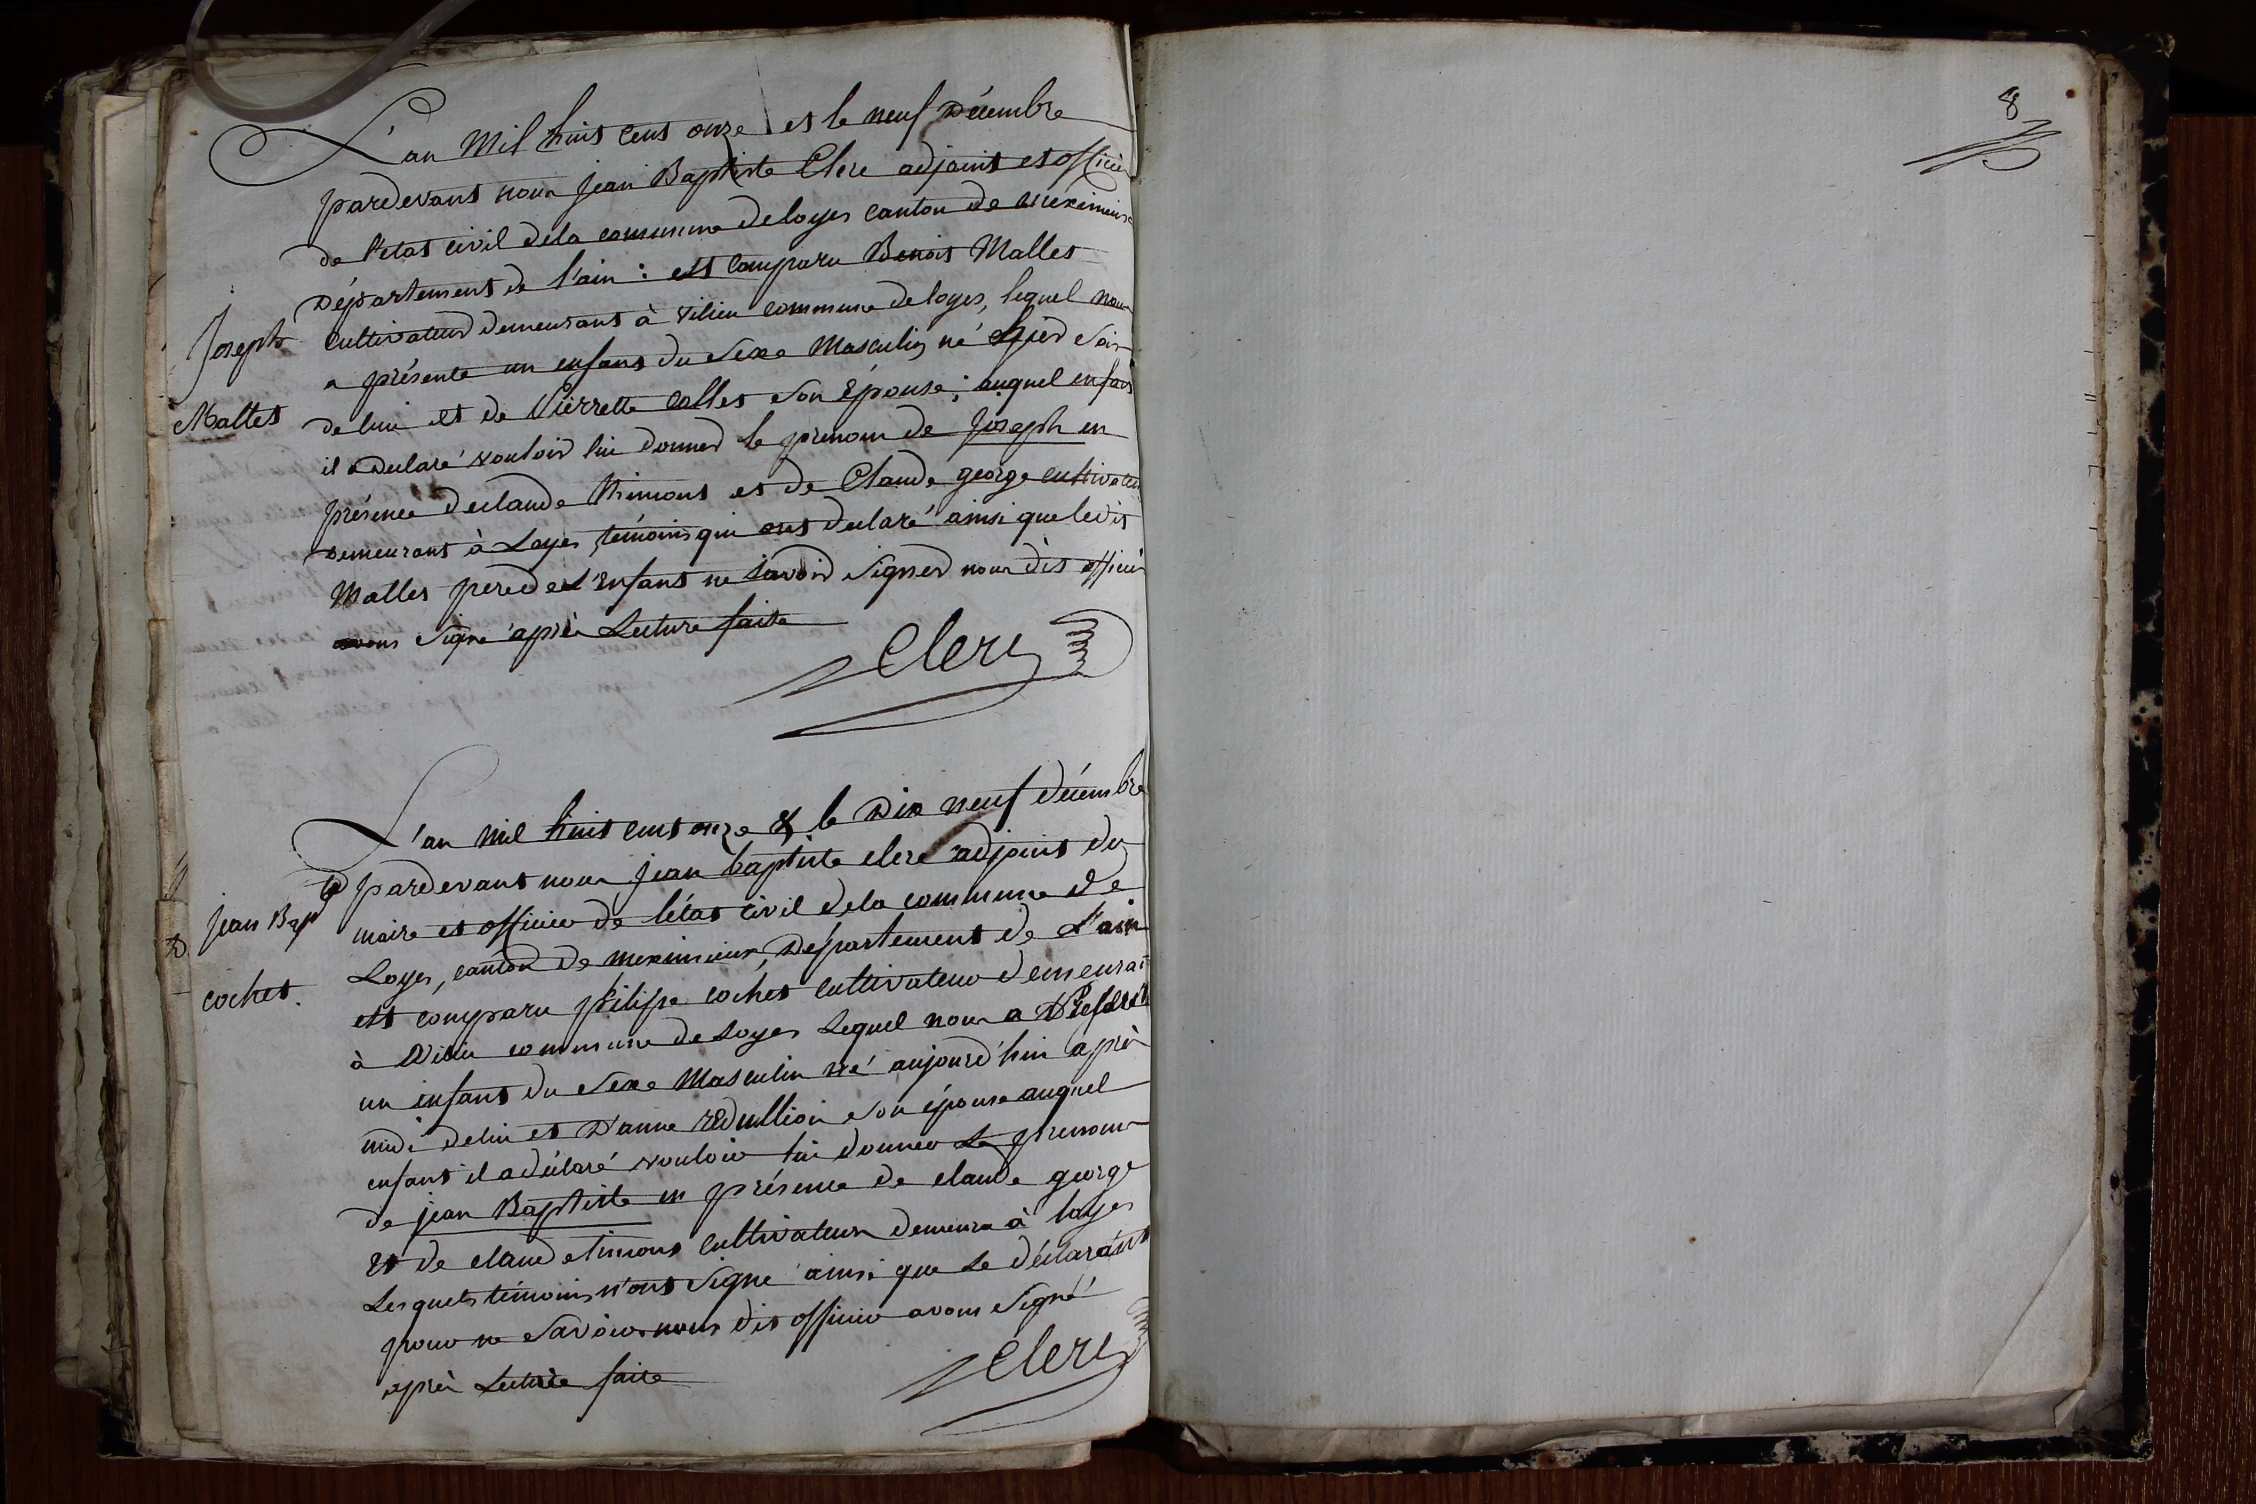 L'an Mil huit cent onze et le neuf Décembre
pardevant nous Jean Baptiste Clerc adjoint et officier
de l'état civil de la commune de loyes canton de meximieux
Département de l'ain : est comparu Benoit Mallet
Joseph
Cultivateur demeurant à vilieu commune de loyes, lequel nous
a présenté un enfant du Sexe Masculin né hier Soir
Mallet
de lui et de Pierrette Collet Son Épouse ; auquel enfant
il a declaré vouloir lui donner le prenom de Joseph en
présence de claude Thimont et de Claude george cultivateurs
demeurant à Loyes, témoins qui ont declaré ainsi que ledit
Mallet pere de L'Enfant ne Savoir Signer nous dit officier
avons Signé après Lecture faite
Clerc
L'an mil huit cent onze & le Dix neuf décembre
pardevant nous jean baptiste clerc adjoint du
Jean Bap
maire et officier de l'état civil de la commune de
Loyes, canton de meximieux, Département de L'ain
cochet.
est comparu philipe cochet cultivateur demeurant
à Vilieu commune de Loyes Lequel nous a Présenté
un enfant du Sexe Masculin né aujourd'hui après
midi de lui et D'anne Son épouse auquel
enfant il a déclaré vouloir lui donner Le prenom
de jean Baptiste en présence de claude george
Et de claude timont Cultivateurs demeura à loyes
Lesquels témoins n'ont Signé ainsi que Le déclarant
pour ne Savoir nous dit officier avons Signé
après Lecture faite
Clerc
8